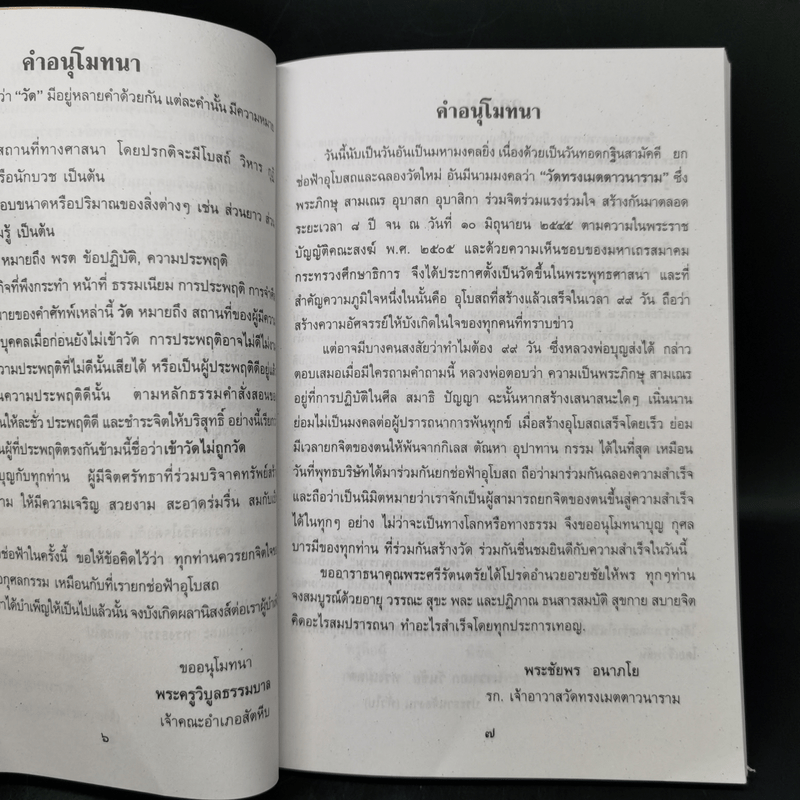 คำอนุโมทนา
ว่า “วัด” มีอยู่หลายคำด้วยกัน แต่ละคำนั้น มีความหมาย
สถานที่ทางศาสนา โดยปรกติจะมีโบสถ์ วิหาร
รือนักบวช เป็นต้น
อบขนาดหรือปริมาณของสิ่งต่างๆ เช่น ส่วนยาว ส่วน
รู้ เป็นต้น
หมายถึง พรต ข้อปฏิบัติ, ความประพฤติ
กิจที่พึงกระทำ หน้าที่ ธรรมเนียม การประพฤติ การจำศีล
ายของคำศัพท์เหล่านี้ วัด หมายถึง สถานที่ของผู้มีความ
บุคคลเมื่อก่อนยังไม่เข้าวัด การประพฤติอาจไม่ดีไม่งาม
วามประพฤติที่ไม่ดีนั้นเสียได้ หรือเป็นผู้ประพฤติดีอยู่แล้ว
นความประพฤติดีนั้น ตามหลักธรรมคำสั่งสอนของ
นให้ละชั่ว ประพฤติดี และชำระจิตให้บริสุทธิ์ อย่างนี้เรียกว่า
นผู้ที่ประพฤติตรงกันข้ามนี้ชื่อว่าเข้าวัดไม่ถูกวัด
บุญกับทุกท่าน ผู้มีจิตศรัทธาที่ร่วมบริจาคทรัพย์สร้าง
าม ให้มีความเจริญ สวยงาม สะอาดร่มรื่น สมกับเป็น
ช่อฟ้าในครั้งนี้ ขอให้ข้อคิดไว้ว่า ทุกท่านควรยกจิตใจของ
อกุศลกรรม เหมือนกับที่เรายกช่อฟ้าอุโบสถ
าได้บำเพ็ญให้เป็นไปแล้วนั้น จงบังเกิดผลานิสงส์ต่อเราผู้บำเพ็ญ
ขออนุโมทนา
พระครูวิบูลธรรมบาล
เจ้าคณะอำเภอสัตหีบ
๖
คำอนุโมทนา
วันนี้นับเป็นวันอันเป็นมหามงคลยิ่ง เนื่องด้วยเป็นวันทอดกฐินสามัคคี ยก
ช่อฟ้าอุโบสถและฉลองวัดใหม่ อันมีนามมงคลว่า “วัดทรงเมตตาวนาราม” ซึ่ง
พระภิกษุ สามเณร อุบาสก อุบาสิกา ร่วมจิตร่วมแรงร่วมใจ สร้างกันมาตลอด
ระยะเวลา ๘ ปี จน ณ วันที่ ๑๐ มิถุนายน ๒๕๔๕ ตามความในพระราช
บัญญัติคณะสงฆ์ พ.ศ. ๒๕๐๕ และด้วยความเห็นชอบของมหาเถรสมาคม
กระทรวงศึกษาธิการ จึงได้ประกาศตั้งเป็นวัดขึ้นในพระพุทธศาสนา และที่
สำคัญความภูมิใจหนึ่งในนั้นคือ อุโบสถที่สร้างแล้วเสร็จในเวลา ๙๙ วัน ถือว่า
สร้างความอัศจรรย์ให้บังเกิดในใจของทุกคนที่ทราบข่าว
แต่อาจมีบางคนสงสัยว่าทำไมต้อง ๙๙ วัน ซึ่งหลวงพ่อบุญส่งได้ กล่าว
ตอบเสมอเมื่อมีใครถามคำถามนี้ หลวงพ่อตอบว่า ความเป็นพระภิกษุ สามเณร
อยู่ที่การปฏิบัติในศีล สมาธิ ปัญญา ฉะนั้นหากสร้างเสนาสนะใดๆ เนิ่นนาน
ย่อมไม่เป็นมงคลต่อผู้ปรารถนาการพ้นทุกข์ เมื่อสร้างอุโบสถเสร็จโดยเร็ว ย่อม
มีเวลายกจิตของตนให้พ้นจากกิเลส ตัณหา อุปาทาน กรรม ได้ในที่สุด เหมือน
วันที่พุทธบริษัทได้มาร่วมกันยกช่อฟ้าอุโบสถ ถือว่ามาร่วมกันฉลองความสำเร็จ
และถือว่าเป็นนิมิตหมายว่าเราจักเป็นผู้สามารถยกจิตของตนขึ้นสู่ความสำเร็จ
ได้ในทุกๆ อย่าง ไม่ว่าจะเป็นทางโลกหรือทางธรรม จึงขออนุโมทนาบุญ กุศล
บารมีของทุกท่าน ที่ร่วมกันสร้างวัด ร่วมกันชื่นชมยินดีกับความสำเร็จในวันนี้
ขออาราธนาคุณพระศรีรัตนตรัยได้โปรดอำนวยอวยชัยให้พร ทุกๆท่าน
จงสมบูรณ์ด้วยอายุ วรรณะ สุขะ พละ และปฏิภาณ ธนสารสมบัติ สุขกาย สบายจิต
คิดอะไรสมปรารถนา ทำอะไรสำเร็จโดยทุกประการเทอญ.
พระชัยพร อนาภโย
รก. เจ้าอาวาสวัดทรงเมตตาวนาราม
๗